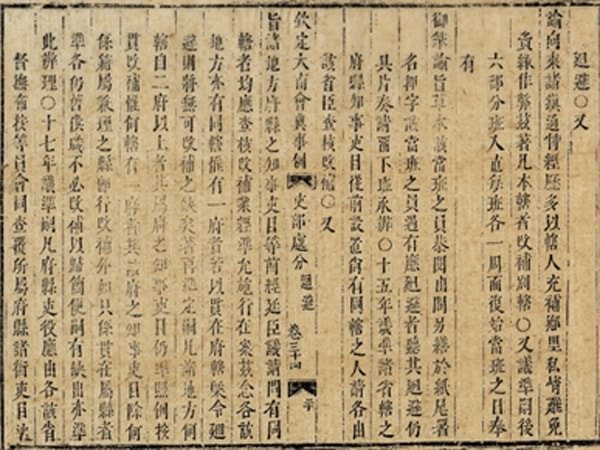 迴避○又
諭向來諸鎮通倩經歷多以轄人充補鄉里私情難免
作弊茲著凡本轄者改補別轄○又議準嗣後
六部分班入直每班各一周而復始當班之日奉
有
御筆諭旨草本該當班之員恭閱由閣另繕於紙尾署
名押字該當班之員遇有應迴避者聽其迴避仍
具片奏請下班承辦○十五年議準諸省轄之
府縣知事吏目從前設置尚有同轄之人請各由
該省臣查核改補○又
欽定大南會典事例 吏部處分 迴避 卷三十四 二十
旨諸地方府縣之知事吏目等前經廷臣議請間有同
轄者均應查核改補業經準允施行在案茲念各該
地方亦有同轄僅有一府者若以貫在府轄槩令迴
避則將無可改補之缺矣著再定嗣凡諸地方同
轄自二府以上者其以府之知事吏目仍準照例按
貫改補惟何轄有一府者其該府之知事吏目除何
係籍屬兼理之縣願行改補外如只係貫在屬縣者
準各仍舊供職不必改補以歸簡便嗣有缺出亦準
此辦理○十七年議準嗣凡府縣吏役應由各該省
督撫布按等員會同查覈所屬府縣諸衙吏目